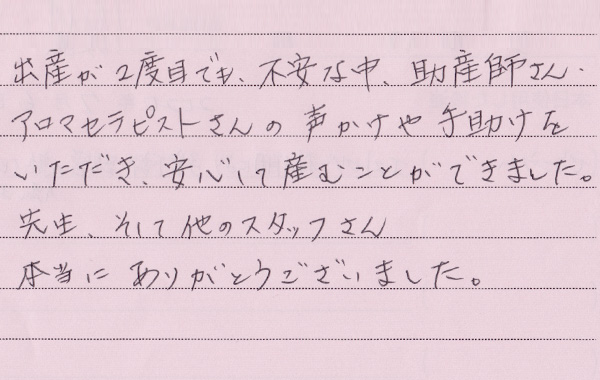 出産が2度目でも、不安な中、助産師さん・
アロマセラピストさんの声かけや手助けを
いただき、安心して産むことができました。
先生、そして他のスタッフさん
本当にありがとうございました。